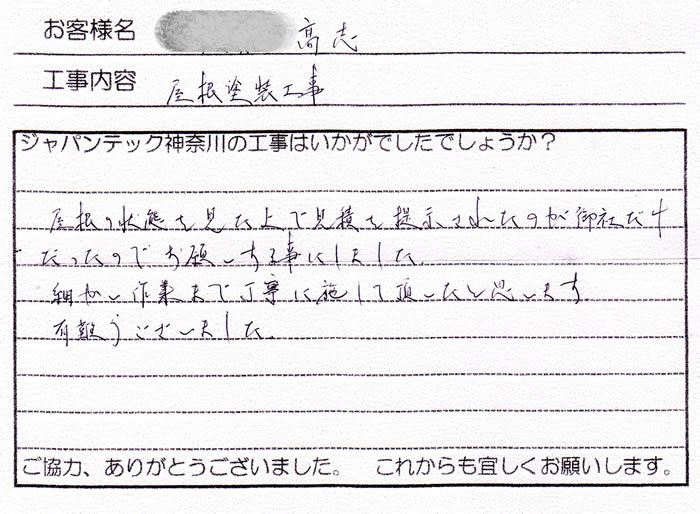 お客様名 高志
工事内容 屋根塗装工事
ジャパンテック神奈川の工事はいかがでしたでしょうか？
屋根の状態を見た上で見積を提示されたのが御社だけ
だったのでお願いする事にしました。
細かい作業まで丁寧に施して頂いたと思います
有難うございました。
ご協力、ありがとうございました。 これからも宜しくお願いします。